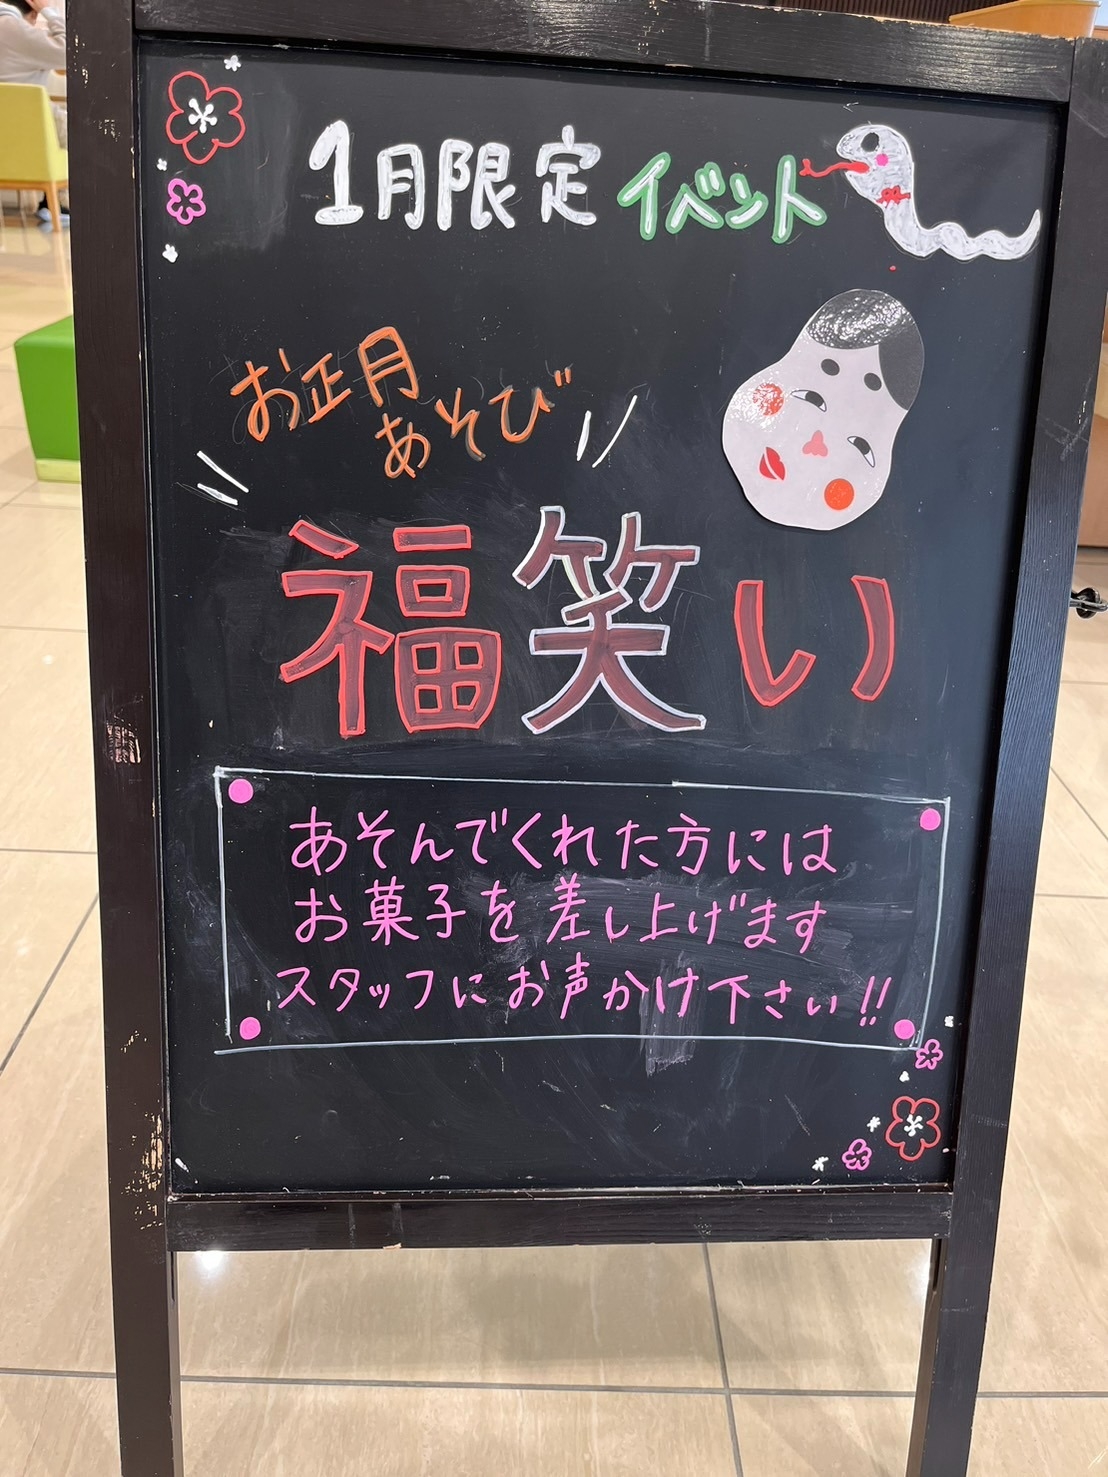 1月限定イベント
お正月
あそび
福笑い
あそんでくれた方には
お菓子を差し上げます
スタッフにお声かけ下さい!!